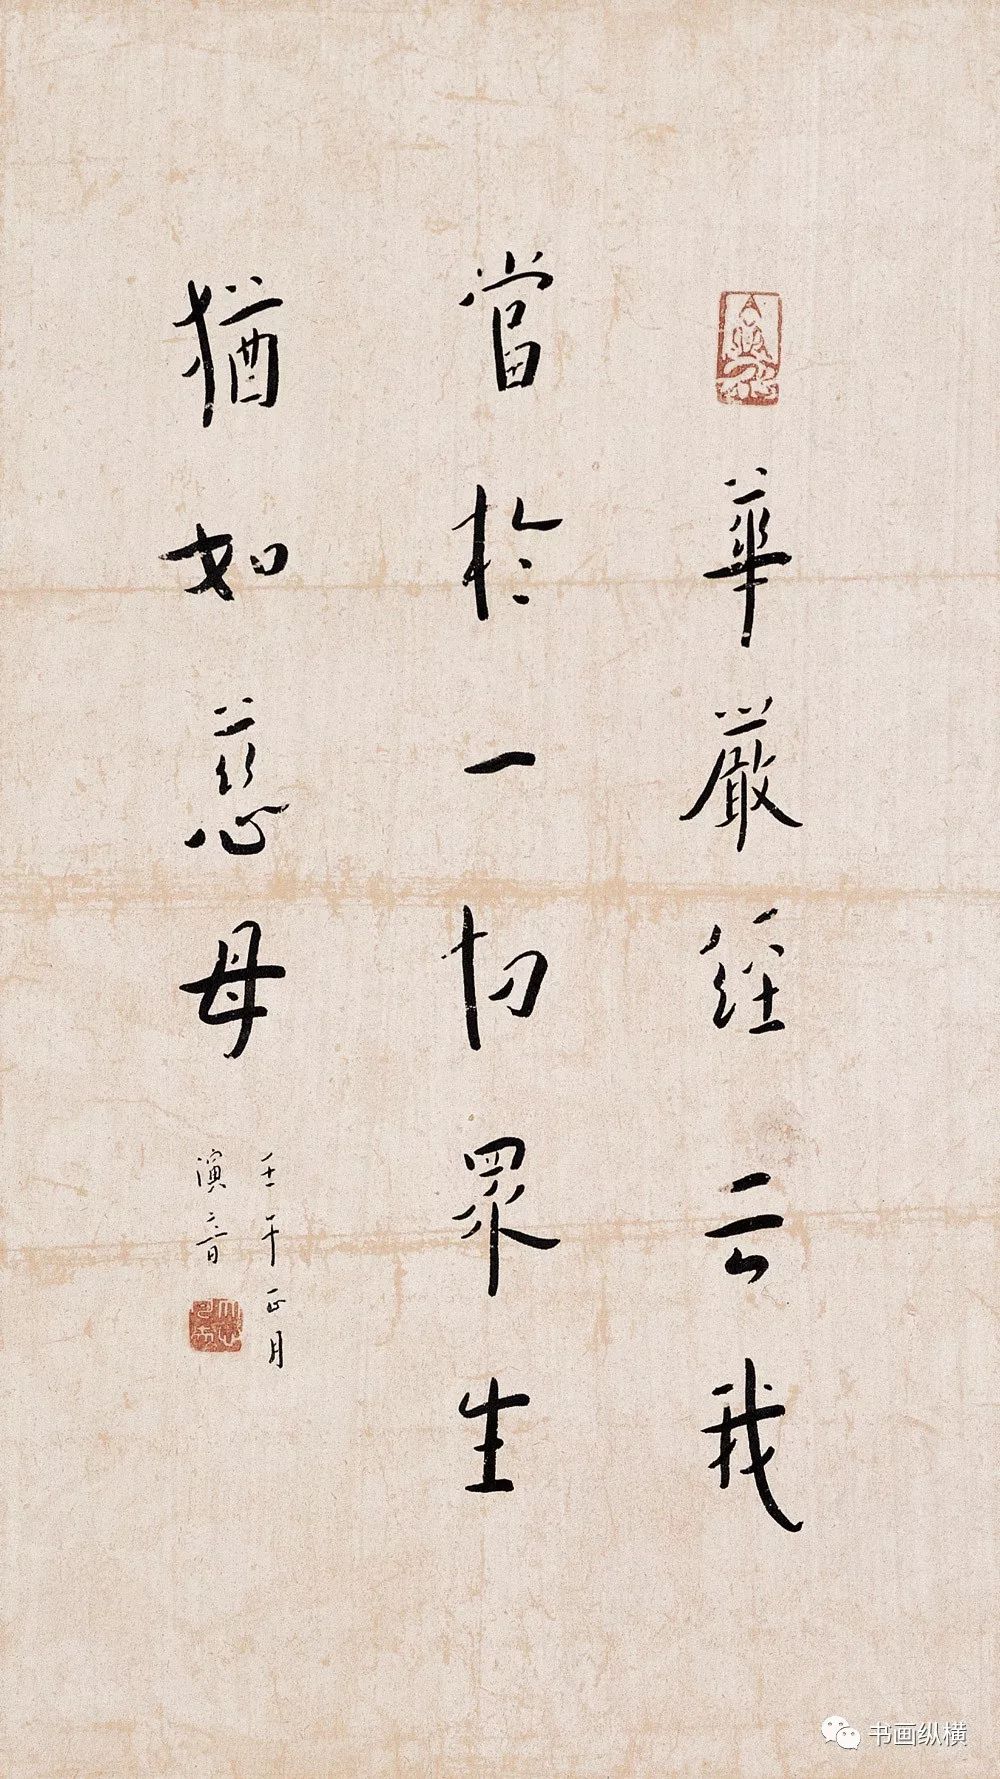 華嚴經云我
當於一切眾生
猶如慈母
壬午正月
演音
书画纵横